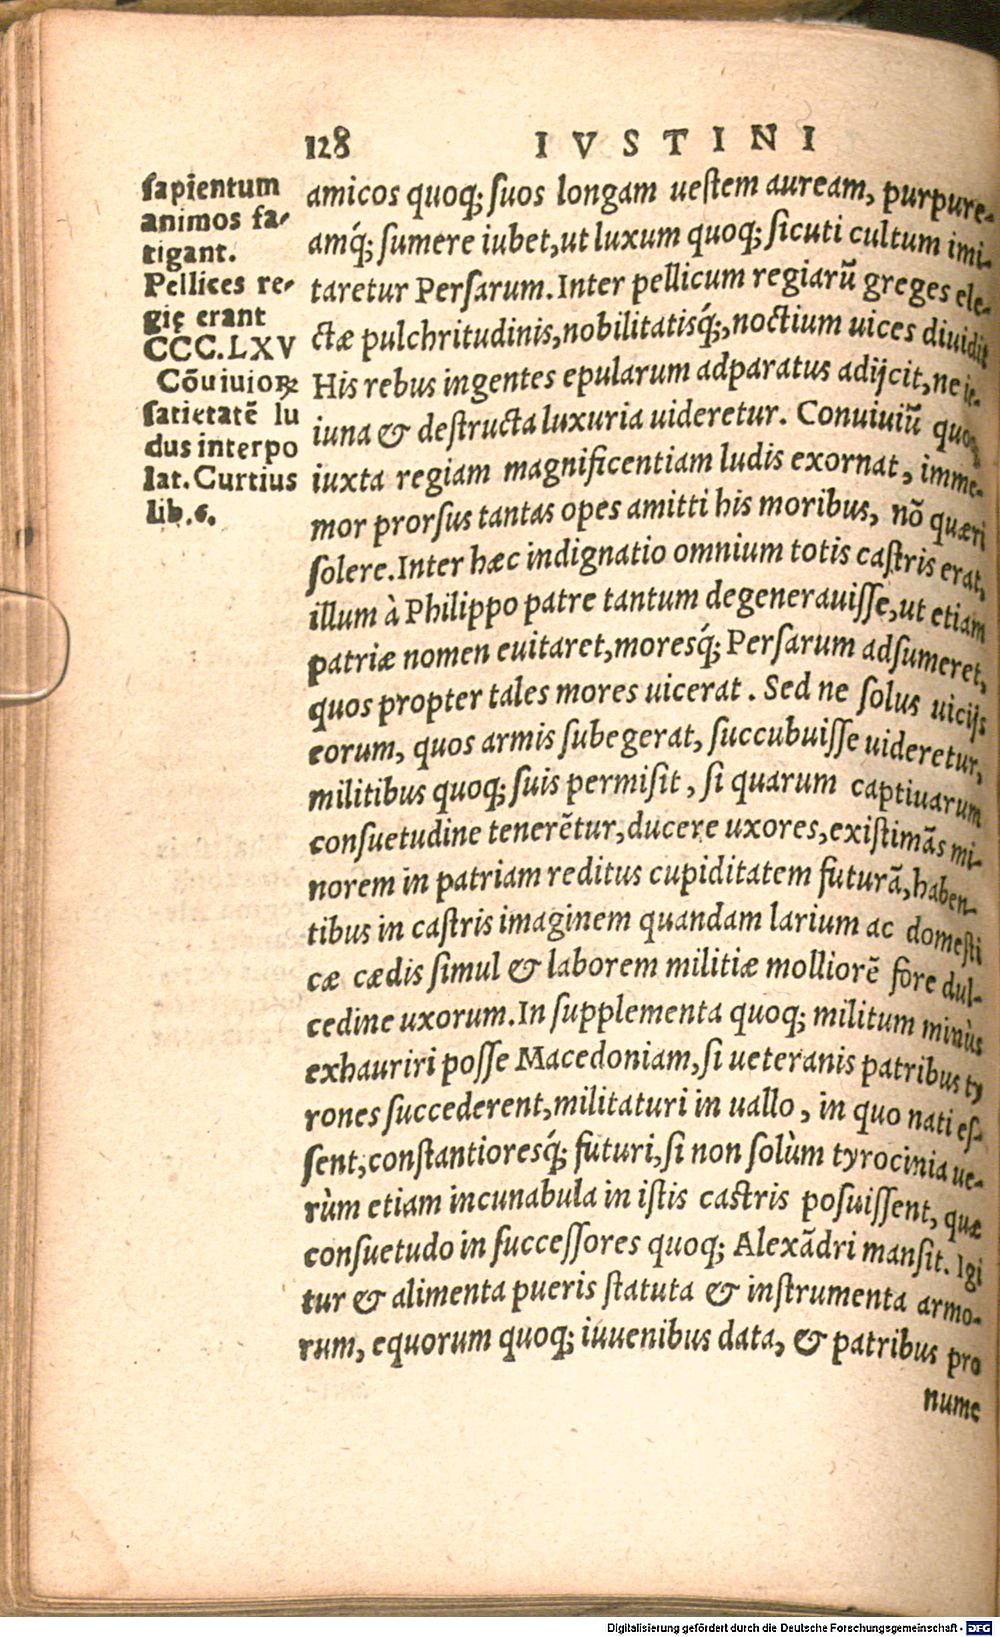 128 IVSTINI
sapientum
animos fa-
tigant.
Pellices re-
gię erant
CCC.LXV
Cōuiuioꝝ
satietatē lu
dus interpo
lat. Curtius
lib.6.
amicos quoq; suos longam uestem auream, purpure-
amq́; sumere iubet, ut luxum quoq; sicuti cultum imi-
taretur Persarum. Inter pellicum regiarū greges ele-
ctæ pulchritudinis, nobilitatisq́;, noctium uices diuidit
His rebus ingentes epularum adparatus adijcit, ne ie-
iuna & destructa luxuria uideretur. Conuiuiū quoq;
iuxta regiam magnificentiam ludis exornat, imme-
mor prorsus tantas opes amitti his moribus, nō quæri
solere. Inter hæc indignatio omnium totis castris erat,
illum à Philippo patre tantum degenerauisse, ut etiam
patriæ nomen euitaret, moresq́; Persarum adsumeret,
quos propter tales mores uicerat. Sed ne solus uicijs
eorum, quos armis subegerat, succubuisse uideretur,
militibus quoq; suis permisit, si quarum captiuarum
consuetudine tenerētur, ducere uxores, existimās mi-
norem in patriam reditus cupiditatem futurā, haben-
tibus in castris imaginem quandam larium ac domesti
cæ cædis simul & laborem militiæ molliorē fore dul-
cedine uxorum. In supplementa quoq; militum minùs
exhauriri posse Macedoniam, si ueteranis patribus ty
rones succederent, militaturi in uallo, in quo nati es-
sent, constantioresq́; futuri, si non solùm tyrocinia ue-
rùm etiam incunabula in istis castris posuissent, quæ
consuetudo in successores quoq; Alexādri mansit. Igi
tur & alimenta pueris statuta & instrumenta armo-
rum, equorum quoq; iuuenibus data, & patribus pro
nume
Digitalisierung gefördert durch die Deutsche Forschungsgemeinschaft - DFG